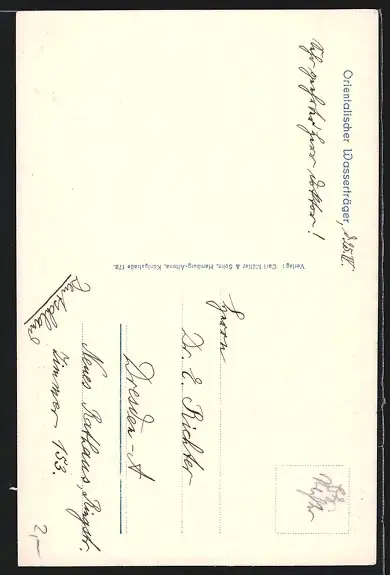 Orientalischer Wasserträger, d. 25. IV.
Sehr geehrter Herr Doktor!
Verlag: Carl Müller & Sohn, Hamburg-Altona, Königstraße 178.
Herrn
Dr. E. Richter
Dresden-A
Neues Rathaus, Ringstr.
Zimmer 153.
2,-